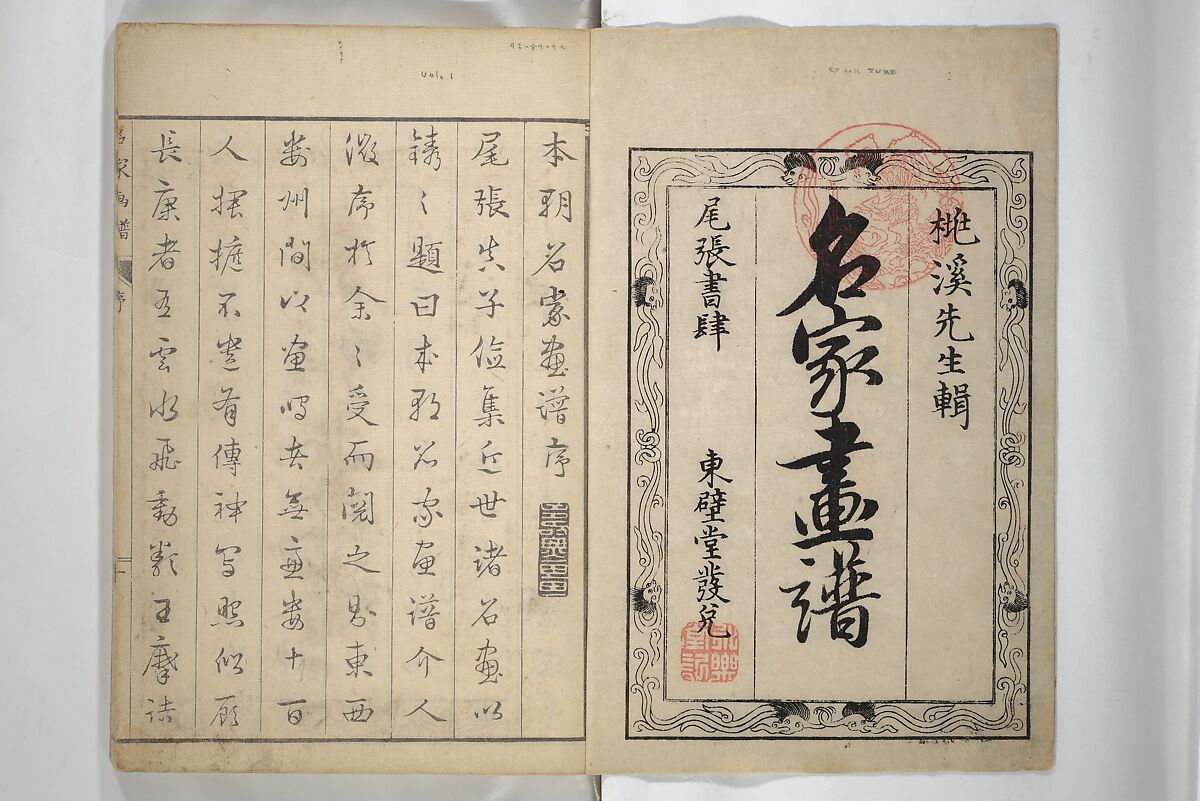 桃溪先生輯
名家畫譜
尾張書肆 東壁堂發兌
ex coll TUKE
Vol. 1
本朝名家畫譜序
尾張月子儉集近世諸名畫以
鐫之題曰本朝名家畫譜介人
徵序於余〻受而閱之則東西
數州間以畫鳴者無慮數十百
人捃摭不遺有傳神寫照似顧
長康者有雲水飛動類王摩詰
名家畫譜 序 一